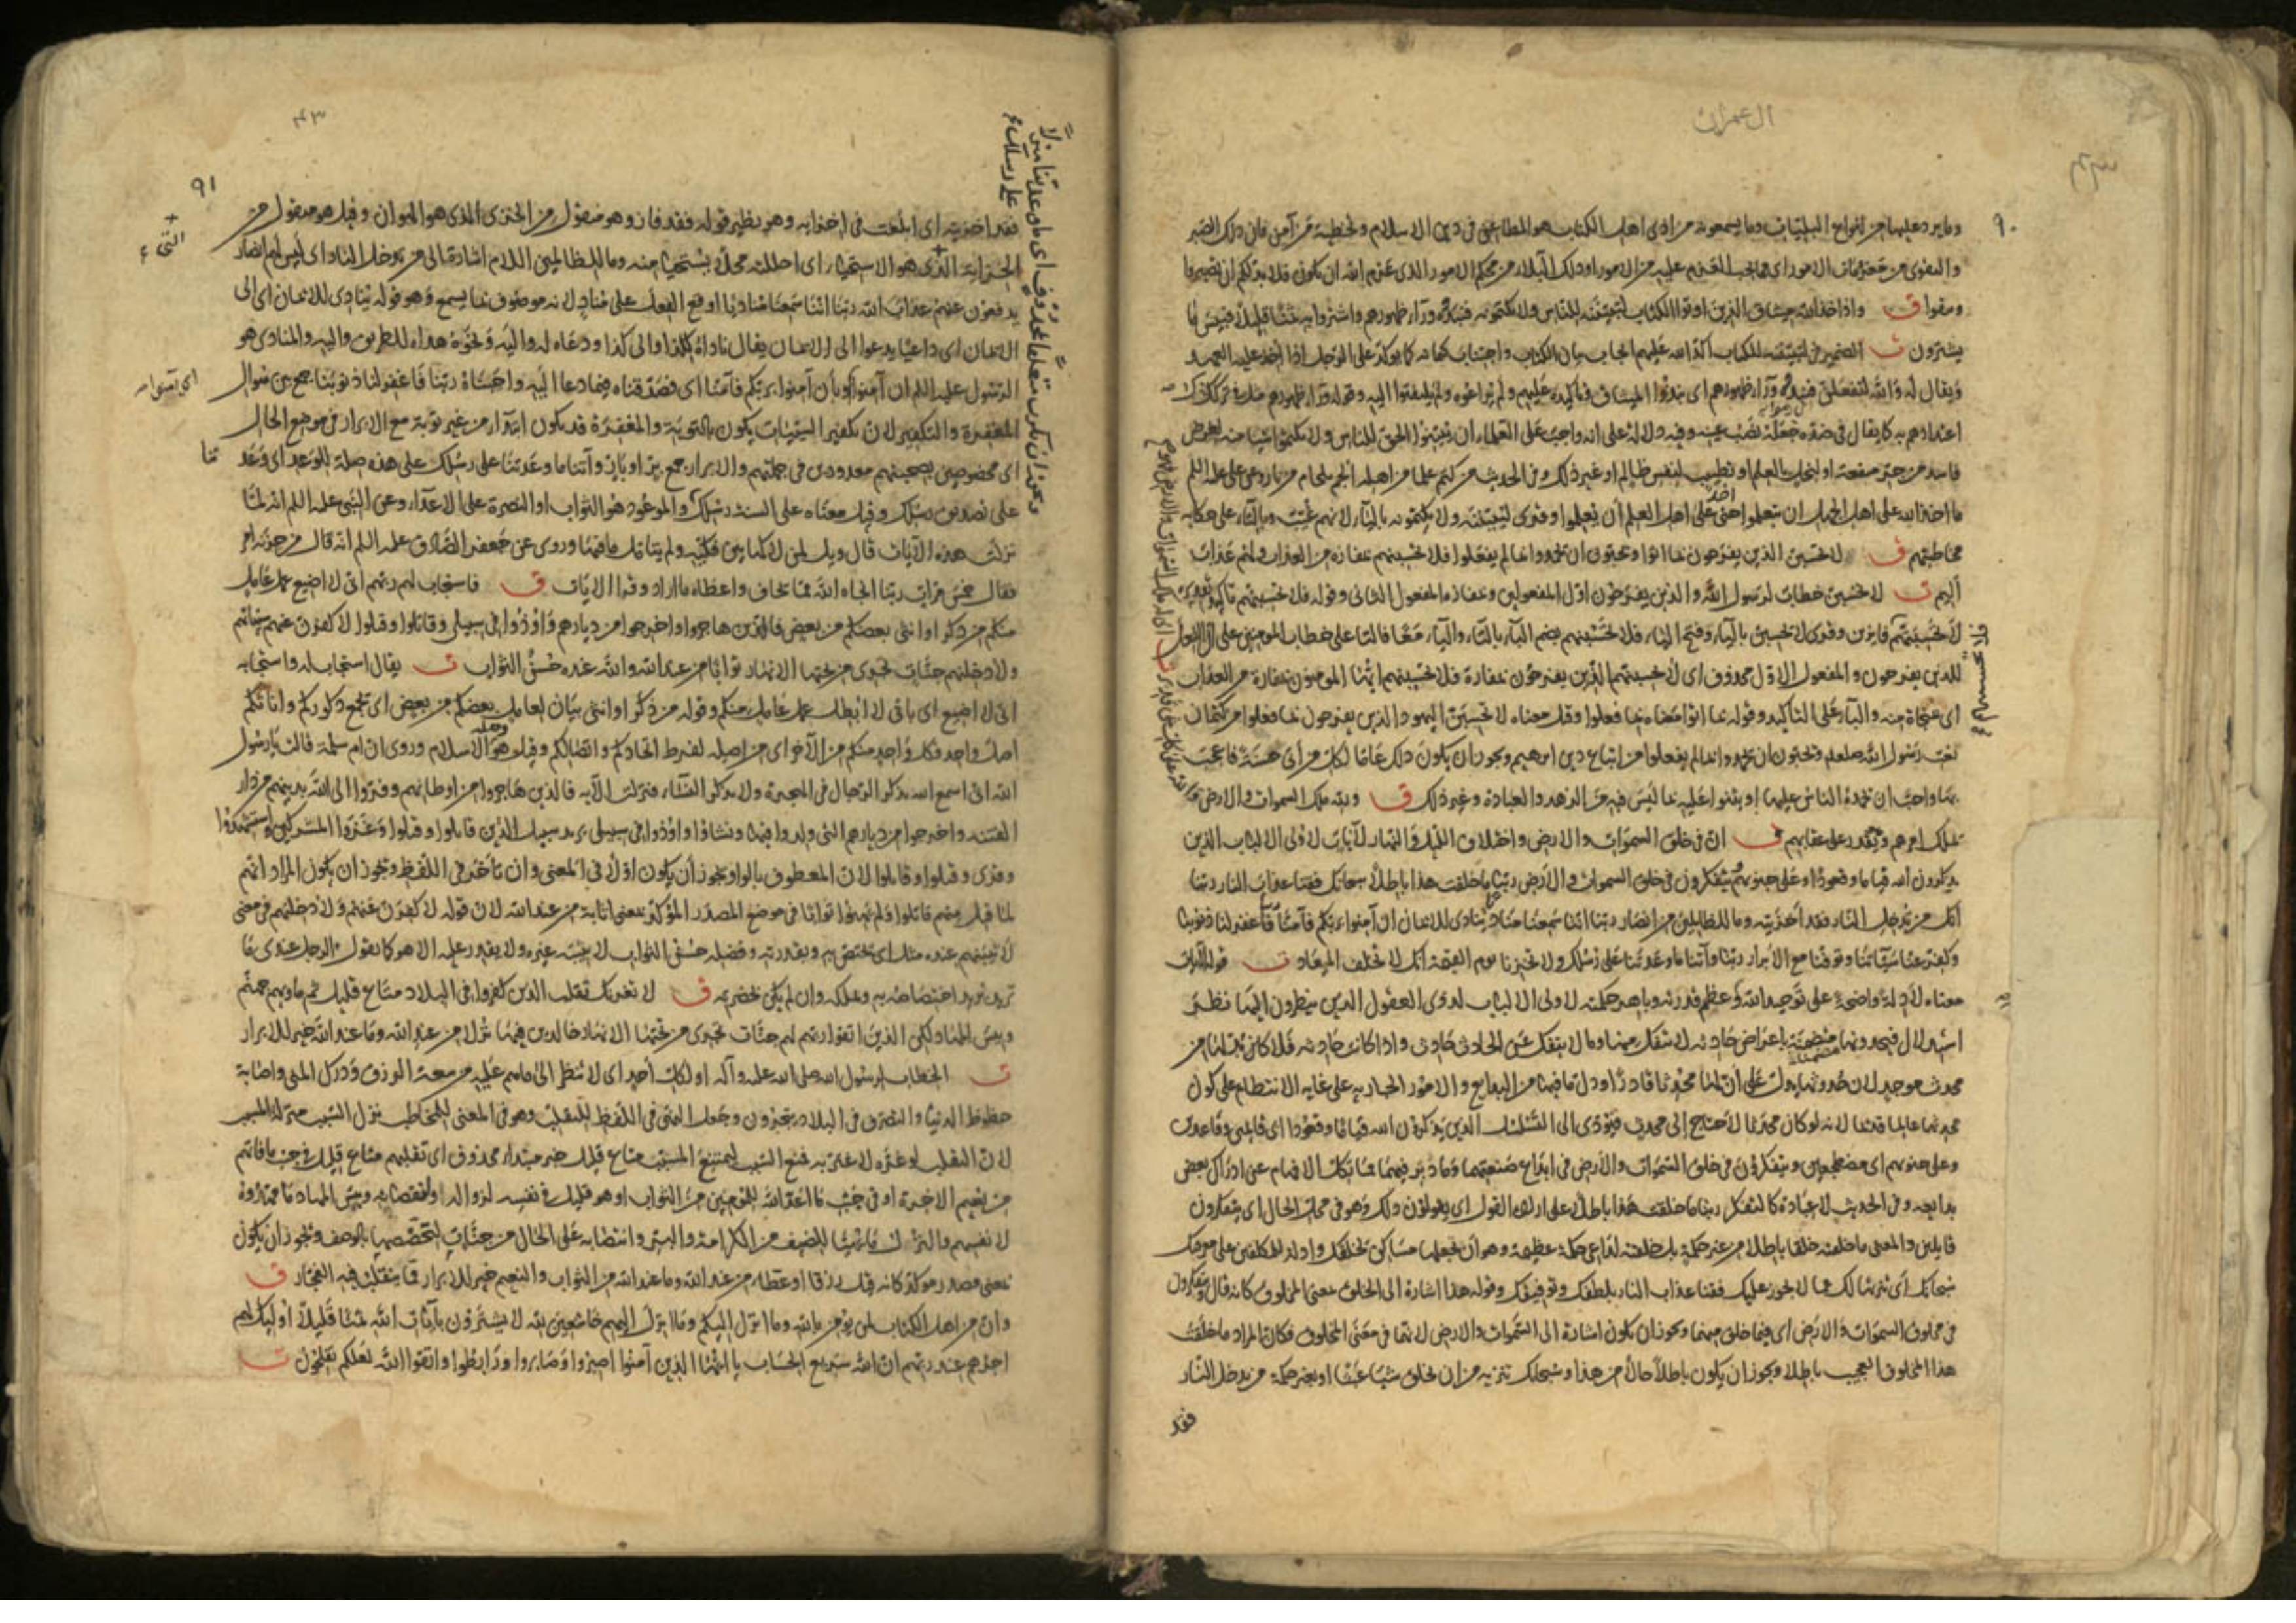 ال عمران
٩٠
وما يرد عليها من انواع البليات وما يسمعونه من اذى اهل الكتاب هو المطاعن فى دين الاسلام وتخطية من آمن فان ذلك الصبر
والتقوى من عزمات الامور اى مما يجب العزم عليه من الامور او ذلك البلاء من محكم الامور الذى عزم الله ان يكون فلا بد لكم ان تصبروا
وتتقوا ق واذ اخذ الله ميثاق الذين اوتوا الكتاب لتبيننه للناس ولا تكتمونه فنبذوه وراء ظهورهم واشتروا به ثمنا قليلا فبئس ما
يشترون ت الضمير فى لتبيننه للكتاب اكد الله عليهم ايجاب بيان الكتاب واجتناب كتمانه كما يوكد على الرجل اذا اخذ عليه العهد
ويقال له والله لتفعلن فنبذوه وراء ظهورهم اى نبذوا الميثاق وتاكيده عليهم ولم يراعوه ولم يلتفتوا اليه وقوله وراء ظهورهم مثل فى ترك
اعتدادهم به كما يقال فى ضده جعله نصب عينه وفيه دلالة على انه واجب على العلماء ان يبينوا الحق للناس ولا يكتموا شيئا منه لغرض
فاسد من جر منفعة او لبخل بالعلم او تطييب لنفس ظالم او غير ذلك وفى الحديث من كتم علما من اهله الجم بلجام من نار وعن على عليه السلم
ما اخذ الله على اهل الجهل ان يتعلموا حتى اخذ على اهل العلم ان يعلموا وقرى ليبيننه ولا يكتمونه بالياء لانهم غيب وبالتاء على حكاية
مخاطبتهم ق لا تحسبن الذين يفرحون بما اتوا ويحبون ان يحمدوا بما لم يفعلوا فلا تحسبنهم بمفازة من العذاب ولهم عذاب
اليم ت لا تحسبن خطاب لرسول الله والذين يفرحون اول المفعولين وبمفازة المفعول الثانى وقوله فلا تحسبنهم تاكيد تقديره
لا تحسبنهم فايزين وقرى لا تحسبن بالياء وفتح الباء فلا تحسبنهم بضم الباء بالتاء والياء معا فالتا على خطاب المومنين على ان الفعل
للذين يفرحون والمفعول الاول محذوف اى لا يحسبنهم الذين يفرحون بمفازة فلا تحسبنهم ايها المومنون بمفازة من العذاب
اى منجاة منه والياء على التاكيد وقوله بما اتوا معناه بما فعلوا وقيل معناه لا تحسبن اليهود الذين يفرحون بما فعلوا من كتمان
نعت رسول الله صلعم ويحبون ان يحمدوا بما لم يفعلوا من اتباع دين ابرهيم ويجوز ان يكون ذلك عاما لكل من اتى حسنة فاعجب
بها واحب ان يحمده الناس عليها او يثنوا عليه بما ليس فيه من الزهد والعبادة وغير ذلك ق ولله ملك السموات والارض
يملك امرهم ويقدر على عقابهم ق ان فى خلق السموات والارض واختلاف الليل والنهار لآيات لاولى الالباب الذين
يذكرون الله قياما وقعودا وعلى جنوبهم ويتفكرون فى خلق السموات والارض ربنا ما خلقت هذا باطلا سبحانك فقنا عذاب النار ربنا
انك من تدخل النار فقد اخزيته وما للظالمين من انصار ربنا اننا سمعنا مناديا ينادى للايمان ان آمنوا بربكم فآمنا فاغفر لنا ذنوبنا
وكفر عنا سيآتنا وتوفنا مع الابرار ربنا وآتنا ما وعدتنا على رسلك ولا تخزنا يوم القيمة انك لا تخلف الميعاد ت قوله لآيات
معناه لادلة واضحة على توحيد الله وعظم قدرته وباهر حكمته لاولى الالباب لذوى العقول الذين ينظرون اليها نظر
استدلال فيجدونها مضمنة باعراض حادثة لا تنفك منها وما لا ينفك عن الحادث حادث واذا كانت حادثة فلا بد لها من
محدث موجد لان حدوثها يدل على ان لها محدثا قادرا ودل ما فيها من البدايع والامور الجارية على غاية الانتظام على كون
محدثها عالما قديما لانه لو كان محدثا لاحتاج الى محدث فيؤدى الى التسلسل الذين يذكرون الله قياما وقعودا اى قايمين وقاعدين
وعلى جنوبهم اى مضطجعين ويتفكرون فى خلق السموات والارض فى ابداع صنعتهما وما دبر فيهما مما تكل الافهام عن ادراك بعض
بدايعه وفى الحديث لا عبادة كالتفكر ربنا ما خلقت هذا باطلا على ارادة القول اى يقولون ذلك وهو فى محل الحال اى يتفكرون
قايلين والمعنى ما خلقته خلقا باطلا من غير حكمة بل خلقته لداعى حكمة عظيمة وهو ان تجعلها مساكن لخلقك وادلة للمكلفين على معرفتك
سبحانك اى تنزيها لك عما لا يجوز عليك فقنا عذاب النار بلطفك وتوفيقك وقوله هذا اشارة الى الخلق بمعنى المخلوق كانه قال ويتفكرون
فى مخلوق السموات والارض اى فيما خلق منهما ويجوز ان يكون اشارة الى السموات والارض لانهما فى معنى المخلوق فكان المراد ما خلقت
هذا المخلوق العجيب باطلا ويجوز ان يكون باطلا حالا من هذا وسبحانك تنزيه من ان يخلق شيئا عبثا او بغير حكمة من تدخل النار
فقد
٤٣
٩١
فقد اخزيته اى ابلغت فى اخزايه وهو نظير قوله فقد فاز وهو منقول من الخزى الذى هو الهوان وقيل هو منقول من
الخزاية الذى هو الاستحياء اى احللته محلا يستحيا منه وما للظالمين اللام اشارة الى من يدخل النار اى ليس لهم انصار
يدفعون عنهم عذاب الله ربنا اننا سمعنا مناديا اوقع الفعل على مناد لانه موصوف بما يسمع وهو قوله ينادى للايمان اى الى
الايمان اى داعيا يدعو الى الايمان يقال ناداه لكذا والى كذا ودعاه له واليه ونحوه هداه للطريق واليه والمنادى هو
الرسول عليه السلم ان آمنوا او بان آمنوا بربكم فآمنا اى فصدقناه فيما دعا اليه واجبناه ربنا فاغفر لنا ذنوبنا جمع بين سوال
المغفرة والتكفير لان تكفير السيئات يكون بالتوبة والمغفرة قد يكون ابتداء من غير توبة مع الابرار فى موضع الحال
اى مخصوصين بصحبتهم معدودين فى جملتهم والابرار جمع بر او بار وآتنا ما وعدتنا على رسلك على هذه صلة للوعد اى وعدتنا
على تصديق رسلك وقيل معناه على السنة رسلك والموعود هو الثواب او النصرة على الاعداء وعن النبى عليه السلم انه لما
نزلت هذه الآيات قال ويل لمن لاكها بين فكيه ولم يتامل ما فيها وروى عن جعفر الصادق عليه السلم انه قال من حزنه امر
فقال خمس مرات ربنا انجاه الله مما يخاف واعطاه ما اراد وقرا الآيات ق فاستجاب لهم ربهم انى لا اضيع عمل عامل
منكم من ذكر او انثى بعضكم من بعض فالذين هاجروا واخرجوا من ديارهم واوذوا فى سبيلى وقاتلوا وقتلوا لاكفرن عنهم سيئاتهم
ولادخلنهم جنات تجرى من تحتها الانهار ثوابا من عند الله والله عنده حسن الثواب ت يقال استجاب له واستجابه
انى لا اضيع اى بانى لا ابطل عمل عامل منكم وقوله من ذكر او انثى بيان لعامل بعضكم من بعض اى يجمع ذكوركم واناثكم
اصل واحد فكل واحد منكم من الآخر اى من اصله لفرط اتحادكم واتصالكم وقيل هو وصلة الاسلام وروى ان ام سلمة قالت يا رسول
الله انى اسمع الله يذكر الرجال فى الهجرة ولا يذكر النساء فنزلت الآية فالذين هاجروا من اوطانهم وفروا الى الله بدينهم من دار
الفتنة واخرجوا من ديارهم التى ولدوا فيها ونشاؤا واوذوا فى سبيلى يريد سبيل الدين قاتلوا وقتلوا وغزوا المشركين واستشهدوا
وقرى وقتلوا وقاتلوا لان المعطوف بالواو يجوز ان يكون اولا فى المعنى وان تاخر فى اللفظ ويجوز ان يكون المراد انهم
لما قتل منهم قاتلوا ولم يهنوا ثوابا فى موضع المصدر المؤكد بمعنى اثابة من عند الله لان قوله لاكفرن عنهم ولادخلنهم فى معنى
لاثيبنهم عنده مثل اى يختص به وبقدرته وفضله حسن الثواب لا يثيبه غيره ولا يقدر عليه الا هو كما يقول الرجل عندى ما
تريد يريد اختصاصه به وبملكه وان لم يكن بحضرته ق لا يغرنك تقلب الذين كفروا فى البلاد متاع قليل ثم ماويهم جهنم
وبئس المهاد لكن الذين اتقوا ربهم لهم جنات تجرى من تحتها الانهار خالدين فيها نزلا من عند الله وما عند الله خير للابرار
ت الخطاب لرسول الله صلى الله عليه وآله او لكل احد اى لا تنظر الى ما هم عليه من سعة الرزق ودرك المنى واصابة
حظوظ الدنيا والتصرف فى البلاد يتجرون وجعل النهى فى اللفظ للتقلب وهو فى المعنى للمخاطب نزل السبب منزلة المسبب
لان التقلب لو غره لاغتر به فمنع السبب ليمتنع المسبب متاع قليل خبر مبتداء محذوف اى تقلبهم متاع قليل فى جنب ما فاتهم
من نعيم الاخرة او فى جنب ما اعد الله للمؤمنين من الثواب او هو قليل فى نفسه لزواله وانقضايه وبئس المهاد ما مهدوه
لانفسهم والنزل ما يهيئا للضيف من الكرامة والبر وانتصابه على الحال من جنات لتخصصها بالوصف ويجوز ان يكون
بمعنى مصدر موكد كانه قيل رزقا او عطاء من عند الله وما عند الله من الثواب والنعيم خير للابرار مما يتقلب فيه الفجار ق
وان من اهل الكتاب لمن يؤمن بالله وما انزل اليكم وما انزل اليهم خاشعين لله لا يشترون بآيات الله ثمنا قليلا اوليك لهم
اجرهم عند ربهم ان الله سريع الحساب يا ايها الذين آمنوا اصبروا وصابروا ورابطوا واتقوا الله لعلكم تفلحون ت